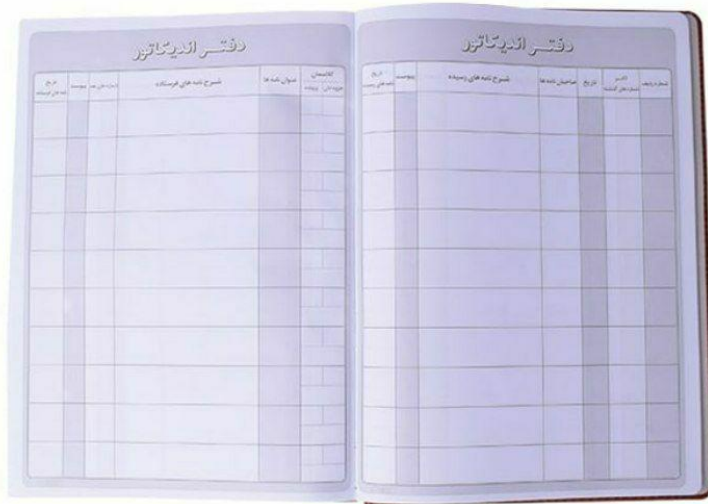 دفتر اندیکاتور
شماره ردیف
شماره های گذشته
تاریخ
صاحبان نامه ها
شرح نامه های رسیده
پیوست
تاریخ
نامه های رسیده
دفتر اندیکاتور
کلاسمان
پرونده
عنوان نامه ها
شرح نامه های فرستاده
شماره های بعد
پیوست
تاریخ
نامه های فرستاده